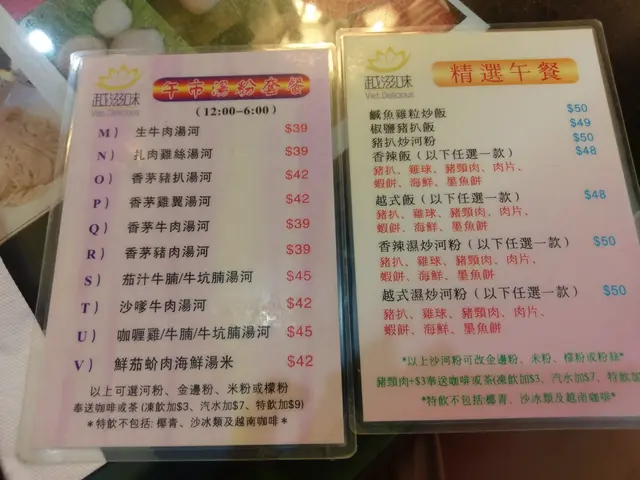 越滋味
Viet.Delicious
午市湯粉套餐
(12:00-6:00)
M) 生牛肉湯河 $39
N) 扎肉雞絲湯河 $39
O) 香茅豬扒湯河 $42
P) 香茅雞翼湯河 $42
Q) 香茅牛肉湯河 $39
R) 香茅豬肉湯河 $39
S) 茄汁牛腩/牛坑腩湯河 $45
T) 沙嗲牛肉湯河 $42
U) 咖喱雞/牛腩/牛坑腩湯河 $45
V) 鮮茄蚧肉海鮮湯米 $42
以上可選河粉、金邊粉、米粉或檬粉
奉送咖啡或茶(凍飲加$3、汽水加$7、特飲加$9)
*特飲不包括: 椰青、沙冰類及越南咖啡*
越滋味
Viet.Delicious
精選午餐
鹹魚雞粒炒飯 $50
椒鹽豬扒飯 $49
豬扒炒河粉 $50
香辣飯(以下任選一款) $48
豬扒、雞球、豬頸肉、肉片、
蝦餅、海鮮、墨魚餅
越式飯(以下任選一款) $48
豬扒、雞球、豬頸肉、肉片、
蝦餅、海鮮、墨魚餅
香辣濕炒河粉(以下任選一款) $50
豬扒、雞球、豬頸肉、肉片、
蝦餅、海鮮、墨魚餅
越式濕炒河粉(以下任選一款) $50
豬扒、雞球、豬頸肉、肉片、
蝦餅、海鮮、墨魚餅
*以上沙河粉可改金邊粉、米粉、檬粉或粉絲*
豬頸肉+$3奉送咖啡或茶(凍飲加$3、汽水加$7、特飲加
*特飲不包括:椰青、沙冰類及越南咖啡*